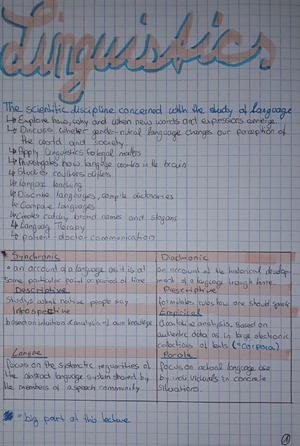 Linguistics
The scientific discipline concerned with the study of language
↳ Explore how, why and when new words and expressions emerge
↳ Discuss whether gender-neutral language changes our perception of
the world and society
↳ Apply Linguistics to legal matters
↳ Investigates how language works in the brain
↳ Studies countless others
↳ language teaching
↳ Describe languages, compile dictionaries
↳ Compare languages
↳ Create catchy brand names and slogans
↳ Language Therapy
↳ patient-doctor communication
Synchronic Diachronic
• an account of a language as it is at an account of the historical develop-
some particular point or period of time ment of a language through time
Descriptive
Studies what native people say formulates rules how one should speak
Introspective Empirical
based on intuition & analysis of own knowledge Quantitative analysis. Based on
authentic data as in large electronic
collections of texts (*corpora)
Langue Parole
focus on the systematic regularities of focus on actual language use
the abstract language system shared by by individuals in concrete
the members of a speech community situations.
* = big part of this lecture